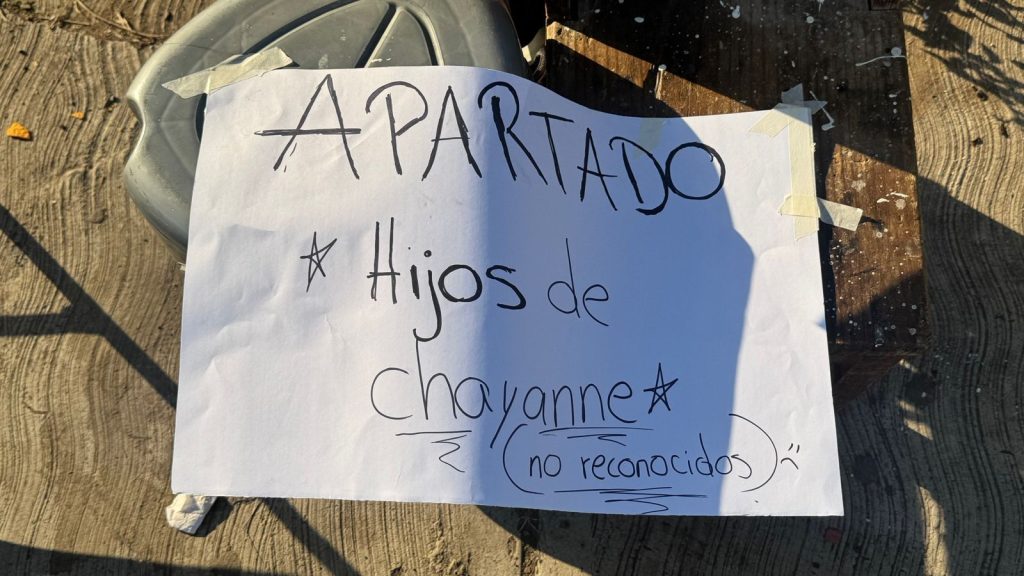 APARTADO
☆ Hijos de
chayanne ☆
(no reconocidos) :(